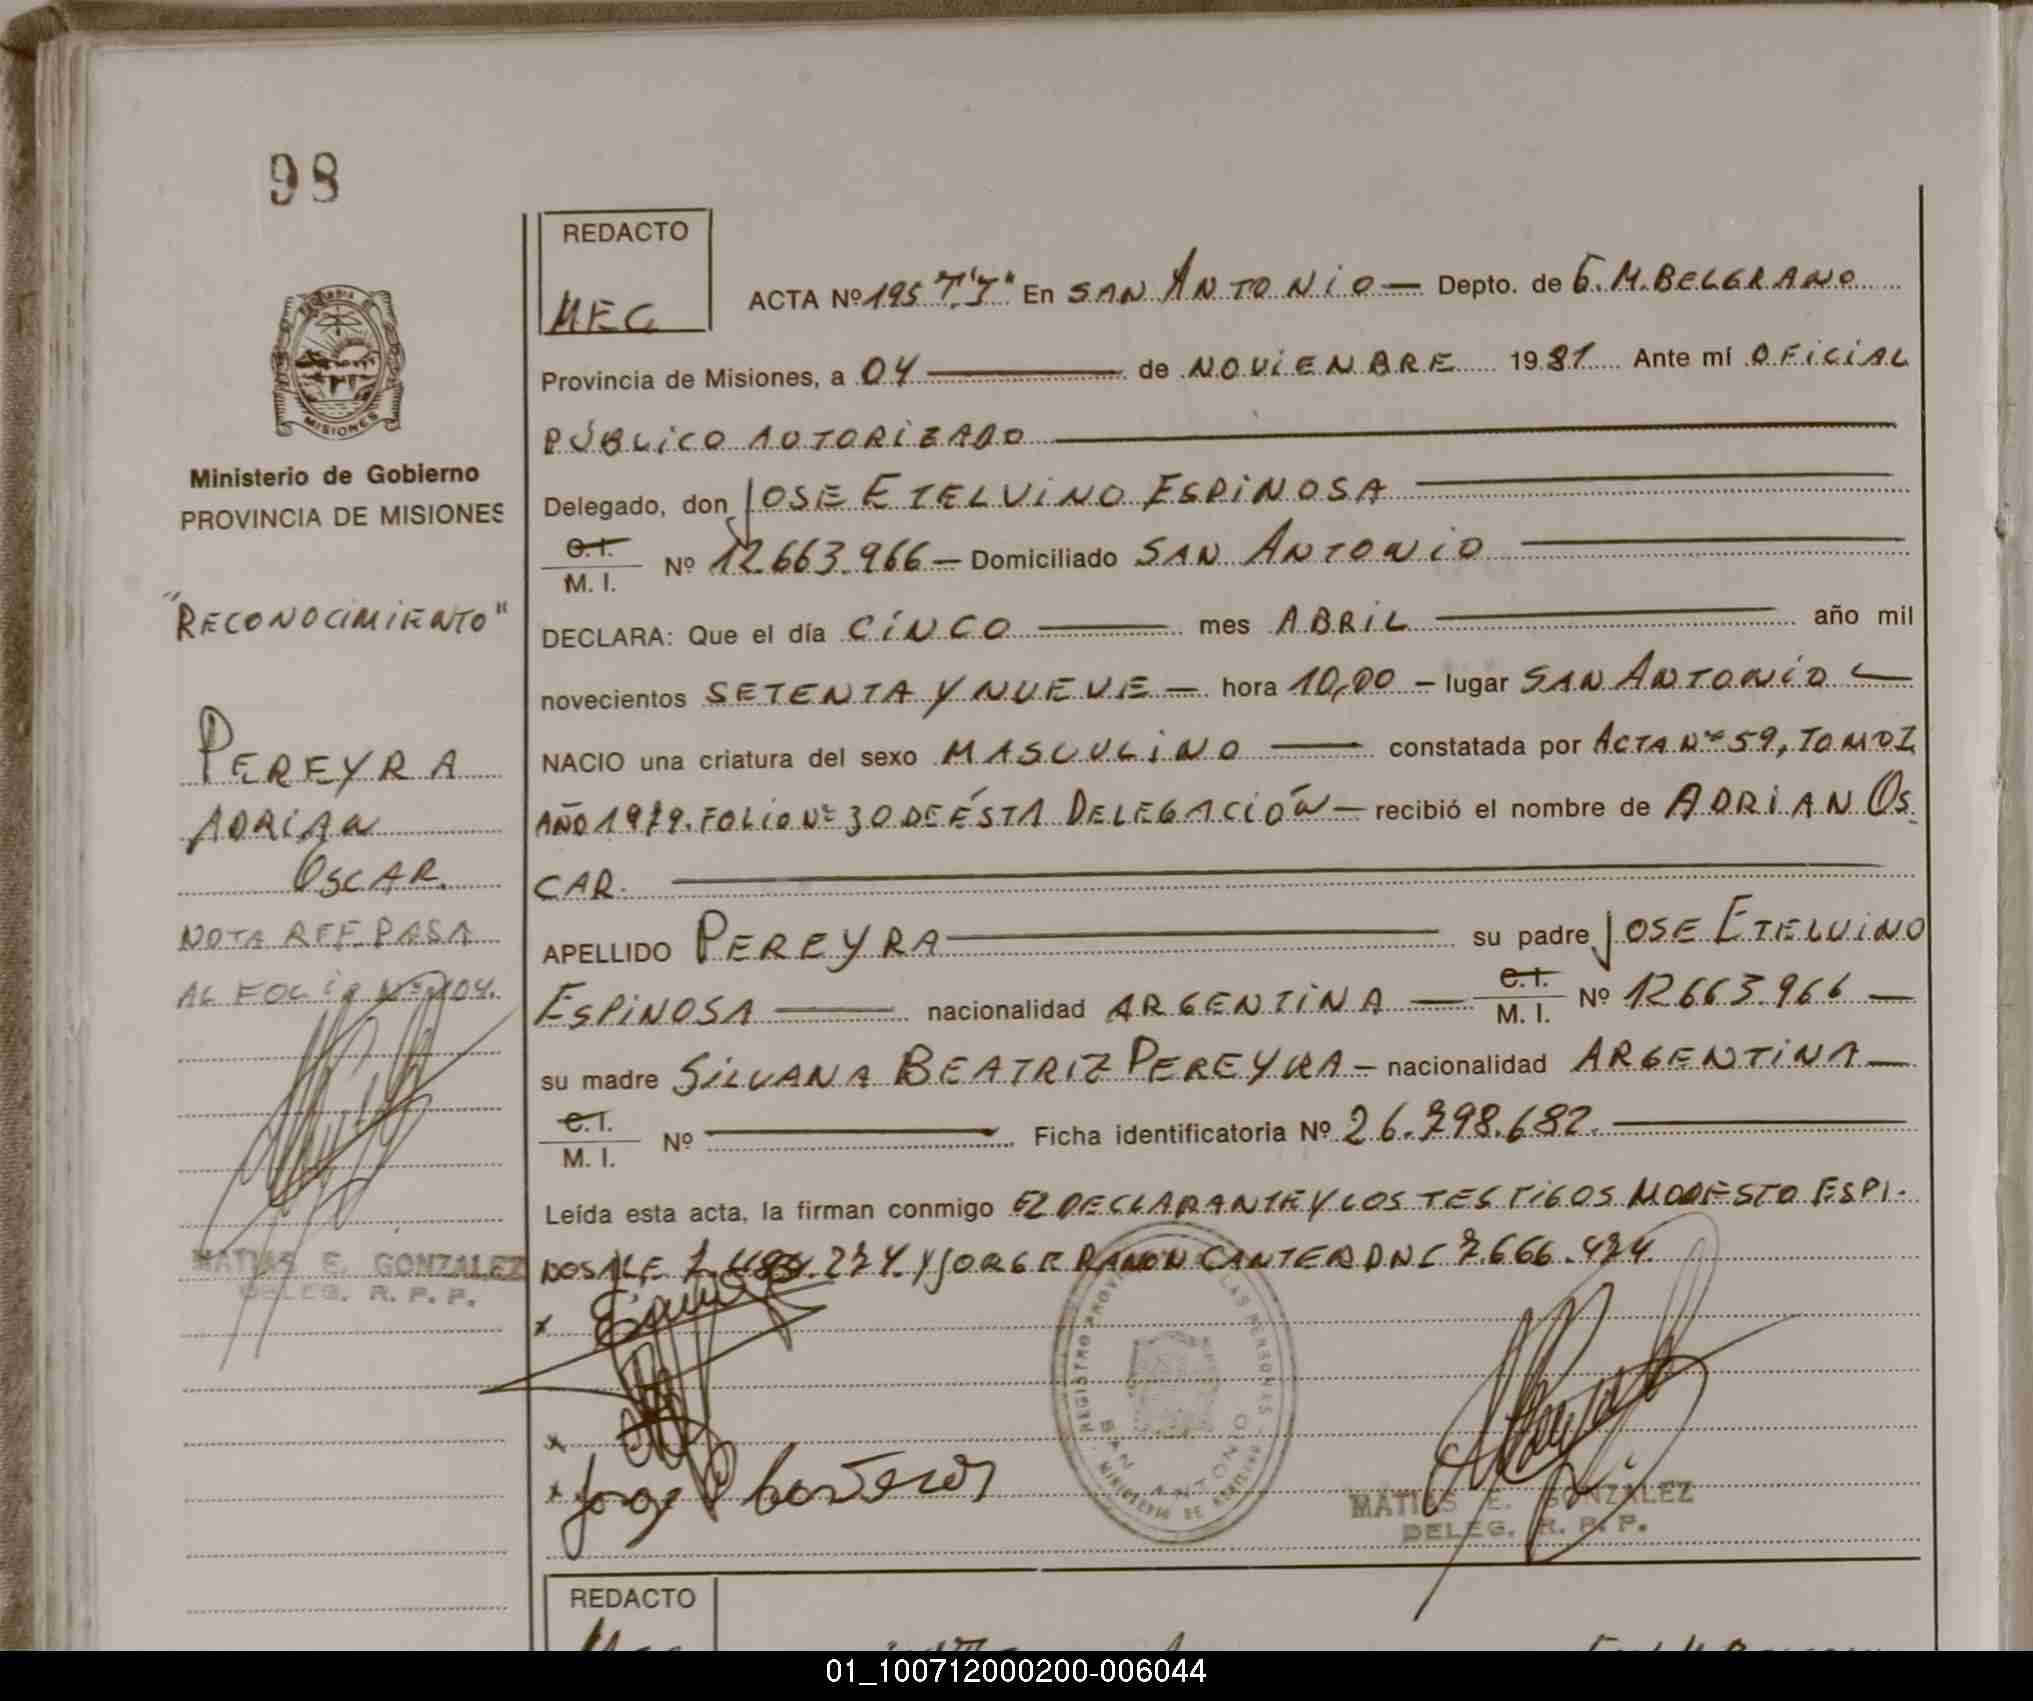 98
REDACTO
MEG
ACTA Nº 195 T "I" En SAN ANTONIO — Depto. de G. M. BELGRANO
Provincia de Misiones, a 04 — de NOVIENBRE 1981 Ante mí OFICIAL
PÚBLICO AUTORIZADO
Delegado, don JOSE ETELVINO ESPINOSA
C.I.
M. I. Nº 12.663.966 — Domiciliado SAN ANTONIO
DECLARA: Que el día CINCO — mes ABRIL — año mil
novecientos SETENTA Y NUEVE — hora 10,00 — lugar SAN ANTONIO —
NACIO una criatura del sexo MASCULINO — constatada por ACTA Nº 59, TOMO I
AÑO 1979. FOLIO Nº 30 DE ÉSTA DELEGACIÓN — recibió el nombre de ADRIAN OS
CAR.
APELLIDO PEREYRA — su padre JOSE ETELVINO
ESPINOSA — nacionalidad ARGENTINA — C.I.
M. I. Nº 12663.966 —
su madre SILVANA BEATRIZ PEREYRA — nacionalidad ARGENTINA —
C.I.
M. I. Nº — Ficha identificatoria Nº 26.798.682.
Leída esta acta, la firman conmigo EL DECLARANTE Y LOS TESTIGOS MODESTO ESPI-
NOSA LE Y JORGE RAMON CANTEROS DNI 7.666.474
REGISTRO PROVINCIAL LAS PERSONAS
SAN ANTONIO
MINISTERIO DE GOBIERNO
MATIAS E. GONZALEZ
DELEG. R. P. P.
MISIONES
Ministerio de Gobierno
PROVINCIA DE MISIONES
"RECONOCIMIENTO"
PEREYRA
ADRIAN
OSCAR.
NOTA REF. PASA
AL FOLIO Nº 104.
MATIAS E. GONZALEZ
DELEG. R. P. P.
REDACTO
01_100712000200-006044